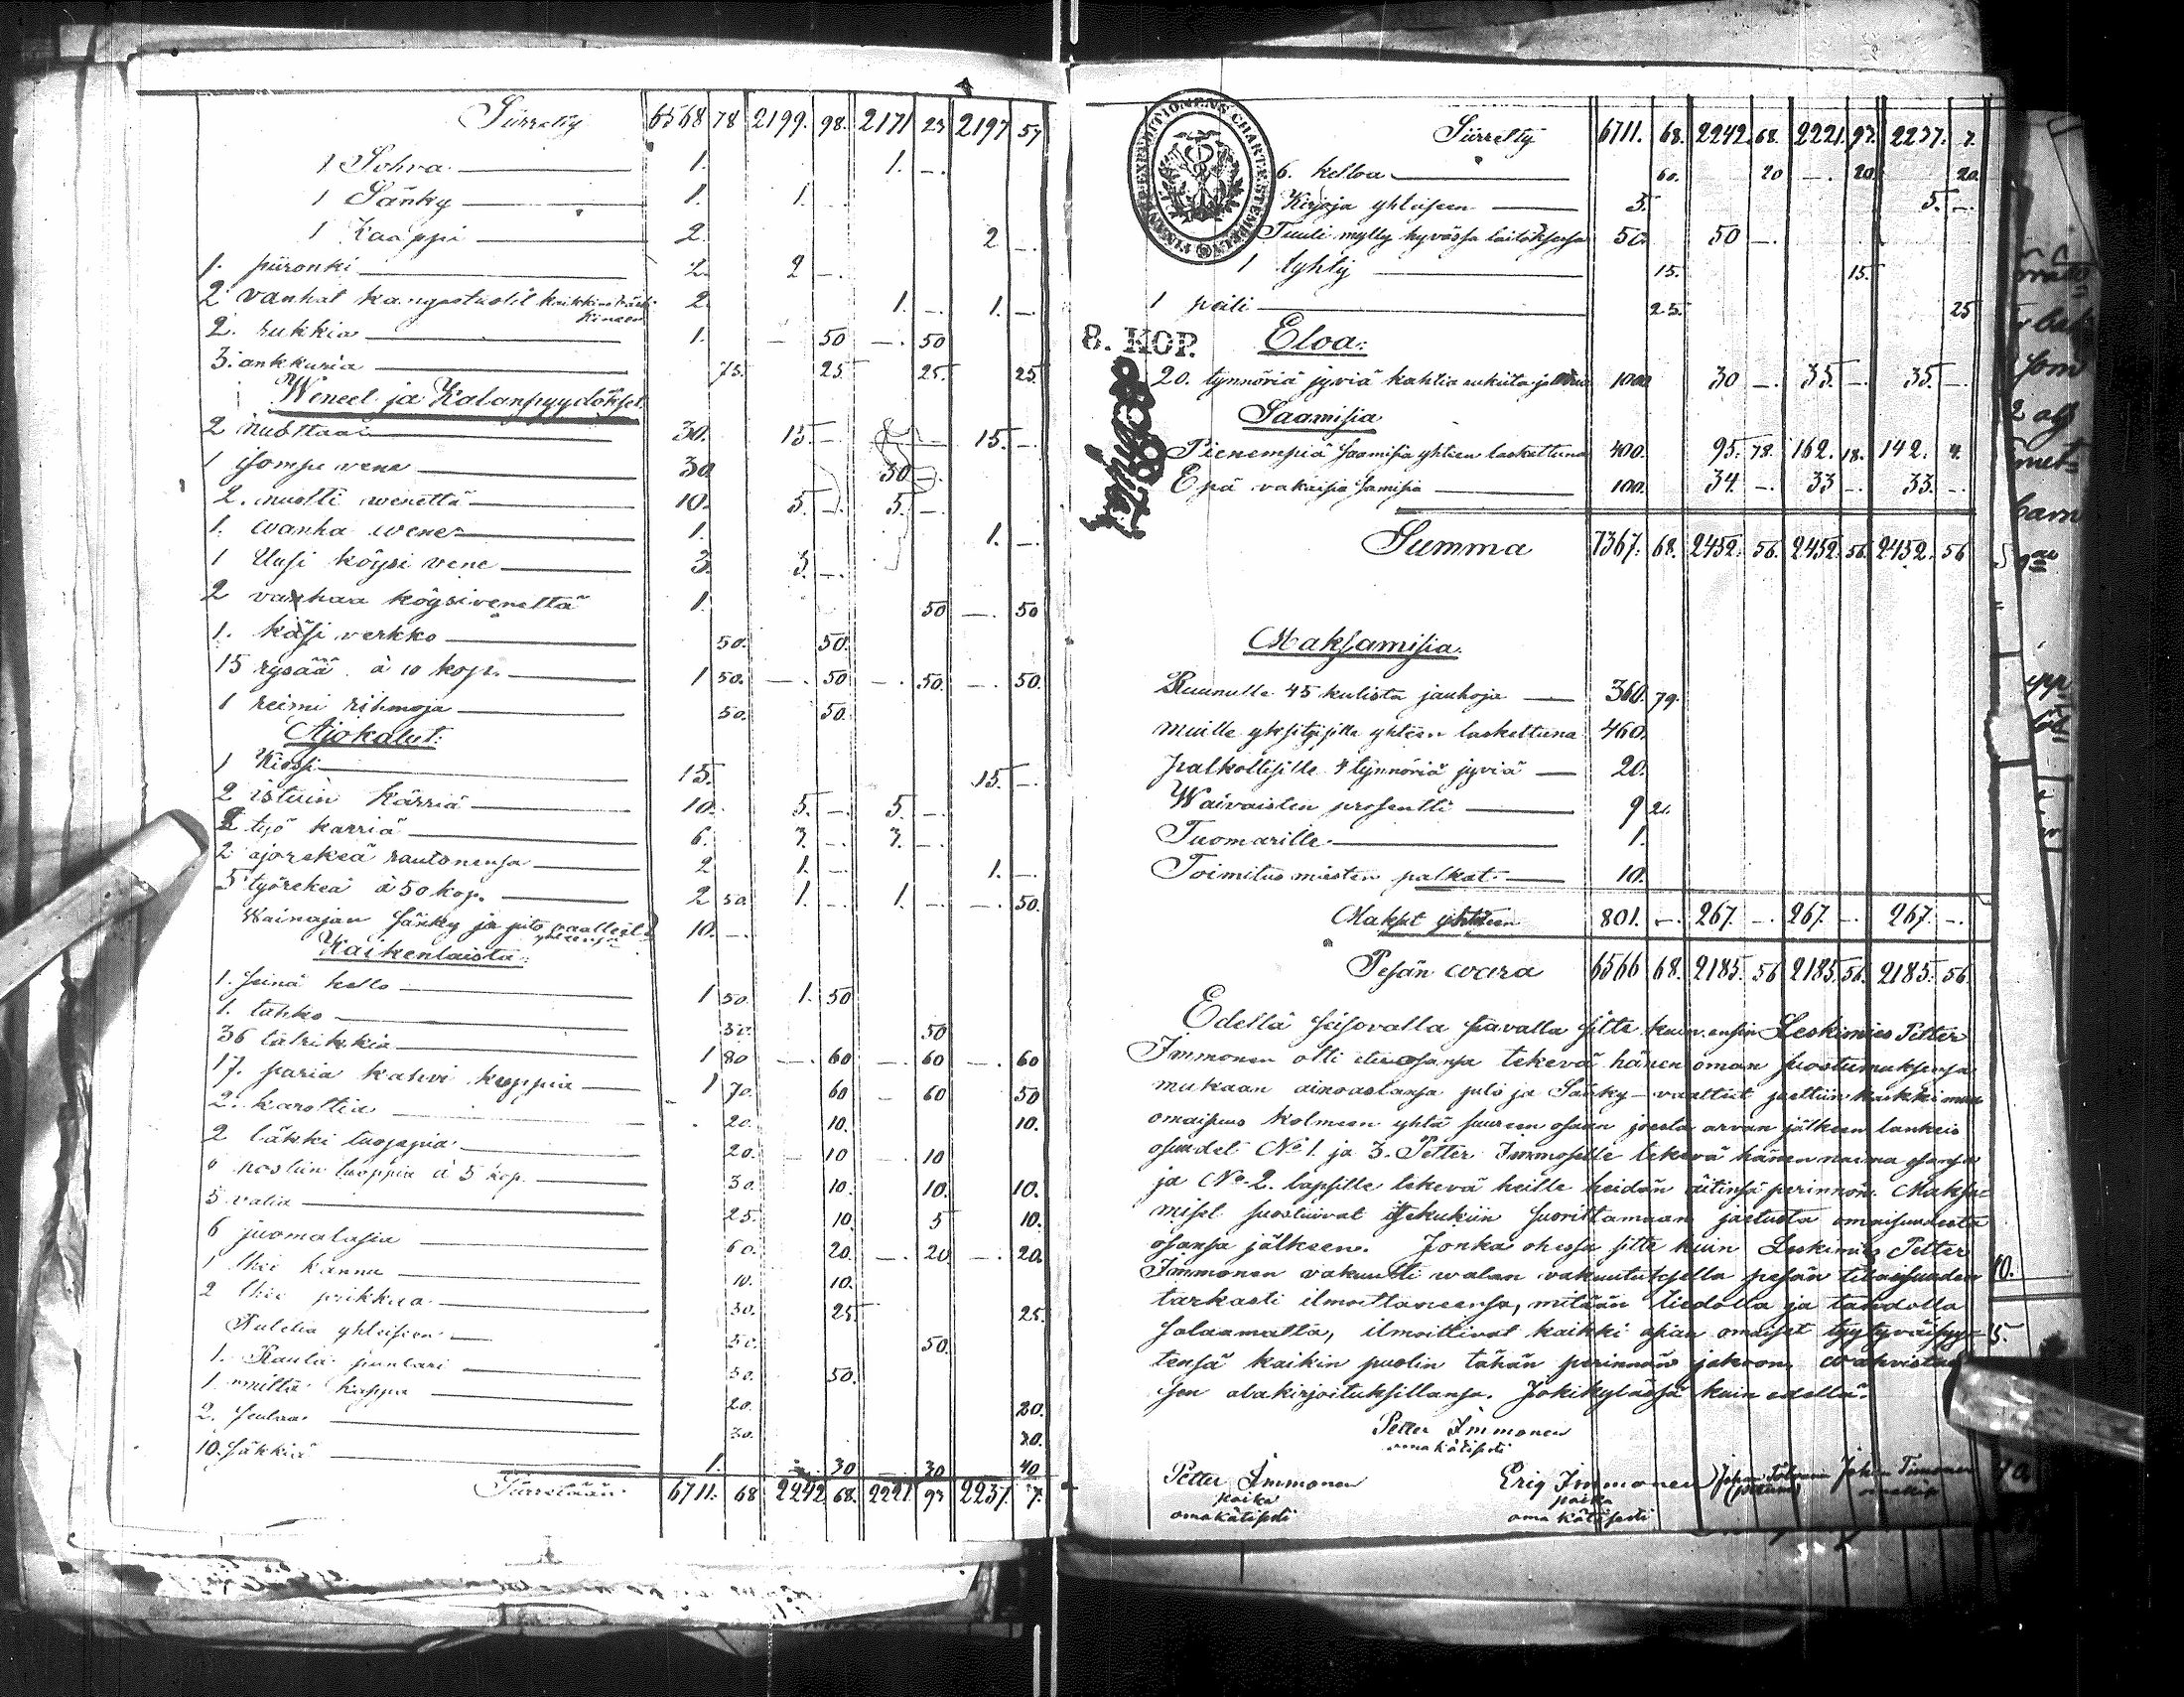 Siirretty 6568 78 2199. 98. 2171 23 2197 57
1 Sohva 1. 1. —.
1 Sänky 1. 1.
1 Kaappi 2. 2 —.
1. piironki 2. 2 —.
2 vanhat kangastuolit 2. 1. —. 1. —.
2. rukkia 1. — 50 —. 50
3. ankkuria 75. 25 25. 25.
Weneet ja Kalanpyydökset.
2 nuottaa 30. 15. —. 15. —.
1 Sompa vene 30. 30 —.
2. nuotti wenettä 10. 5. —. 5. —.
1. wanha wene 1. 1. —.
1 Uusi köysi vene 3. 3. —.
2 vanhaa köysivenettä 1. 50 —. 50
1. käsi verkko 50. 50.
15 rysää à 10 kop. 1 50. —. 50 —. 50. —. 50.
1 reimi rihmoja 50. 50.
Ajokalut:
1 Kiessi 15. 15. —.
2 istuin kärriä 10. 5. —. 5. —.
2 työ kärriä 6. 3. —. 3. —.
2 ajorekeä rautonensa 2 1. —. 1. —.
5 työrekeä à 50 kop. 2 50 1. —. 1. —. —. 50.
Wainajan sänky ja pito vaatteet yhteensä 10. —.
Kaikenlaista:
1. seinä kello 1 50. 1. 50
1. tahko 50. 50
36 talrikkia 1 80 —. 60 —. 60 —. 60
17. paria kahvi kuppia 1 70. 60 — 60 50
2. karottia 20. 10. 10.
2 läkki tuoppia 20. 10 —. 10
6 posliin tuoppia à 5 kop. 30. 10. 10. 10.
5 vatia 25. 10. 5 10.
6 juomalasia 60. 20. —. 20 —. 20.
1 thee kannu 10. 10.
2 thee prikkaa 50. 25 25.
Puteliä yhteiseen 50. 50.
1. Rauta puntari 50. 50.
1. mitta kappa 20. 20.
2. seulaa 20. 20.
10. säkkiä 1. —. 30 30 40
Siirretään. 6711. 68 2242 68. 2221. 93 2237. 7.
FINANS-EXPEDITIONENS CHARTÆ STEMPEL
8. KOP.
Siirretty 6711. 68. 2242. 68. 2221. 93. 2237. 7.
6. kelloa 60. 20 —. 20 20
Kirjoja yhteiseen 5. 5. —.
Tuuli mylly hyvässä laitoksessa 50. 50 —.
1 lyhty 15. 15.
1 peili 25. 25
Eloa:
20. tynnöriä jyviä kahtia rukiita ja ohria 100. 30 —. 35 —. 35 —.
Saamisia
Pienempiä saamisia yhteen laskettuna 400. 95. 78. 162. 18. 142. 4.
Epä vakaisia samisia 100. 34. —. 33 —. 33. —.
Summa 7367. 68. 2452. 56. 2452. 56. 2452. 56
Maksamisia.
Ruunulle 45 kulista jauhoja 360. 79.
muille yksityisille yhteen laskettuna 460.
palkollisille 4 tynnöriä jyviä 20.
Waivaisten prosentti 9 21.
Tuomarille 1.
Toimitus miesten palkat. 10.
Maksut yhteen 801. —. 267. —. 267. —. 267. —.
Pesän wara 6566 68. 2185. 56 2185. 56. 2185. 56.
Edellä seisovalla tavalla sitte kuin ensin Leskimies Petter
Immonen otti etu osansa tekevä hänen oman suostumuksensa
mukaan ainoastansa pito ja Sänky-vaatteet jaettiin kaikki muu
omaisuus kolmeen yhtä suureen osaan joesta arvan jälkeen lankeis
osuudet No 1. ja 3. Petter Immoselle tekevä hänen naima osansa
ja No 2. lapsille tekevä heille heidän äitinsä perinnön. Maksa-
miset suostuivat itsekukin suorittamaan jaetusta omaisuudesta
osansa jälkeen. Jonka ohessa sitte kuin Leskimies Petter
Immonen vakuutti walan vakuutuksella pesän tilaisuuden
tarkasti ilmoittaneensa, mitään tiedolla ja tahdolla
salaamatta, ilmoittivat kaikki asian omaiset tyytyväisyy-
tensä kaikin puolin tähän perinnön jakoon,
sen alakirjoituksillansa. Jokikylässä kuin edellä.
Petter Immonen
omakätisesti
Petter Immonen
poika
omakätisesti
Eriq Immonen
poika
oma kätisesti